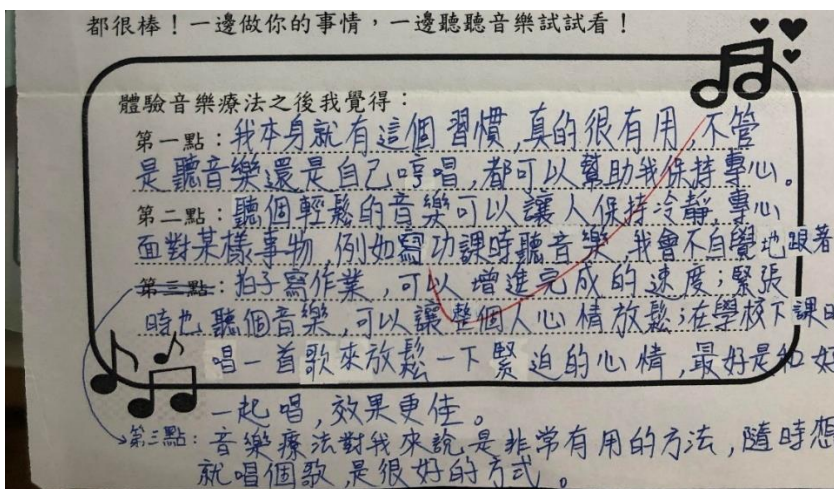 都很棒！一邊做你的事情，一邊聽聽音樂試試看！
體驗音樂療法之後我覺得：
第一點：我本身就有這個習慣,真的很有用,不管
是聽音樂還是自己哼唱,都可以幫助我保持專心。
第二點：聽個輕鬆的音樂可以讓人保持冷靜,專心
面對某樣事物,例如寫功課時聽音樂,我會不自覺地跟著
第三點：拍子寫作業,可以增進完成的速度;緊張
時也聽個音樂,可以讓整個人心情放鬆;在學校下課時
唱一首歌來放鬆一下緊迫的心情,最好是和好
一起唱,效果更佳。
第三點：音樂療法對我來說是非常有用的方法,隨時想
就唱個歌,是很好的方式。